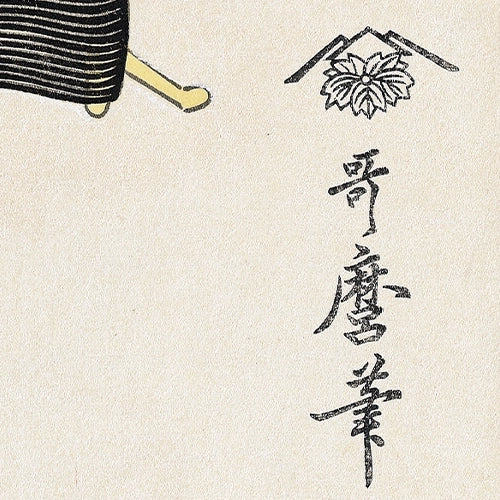 哥麿筆